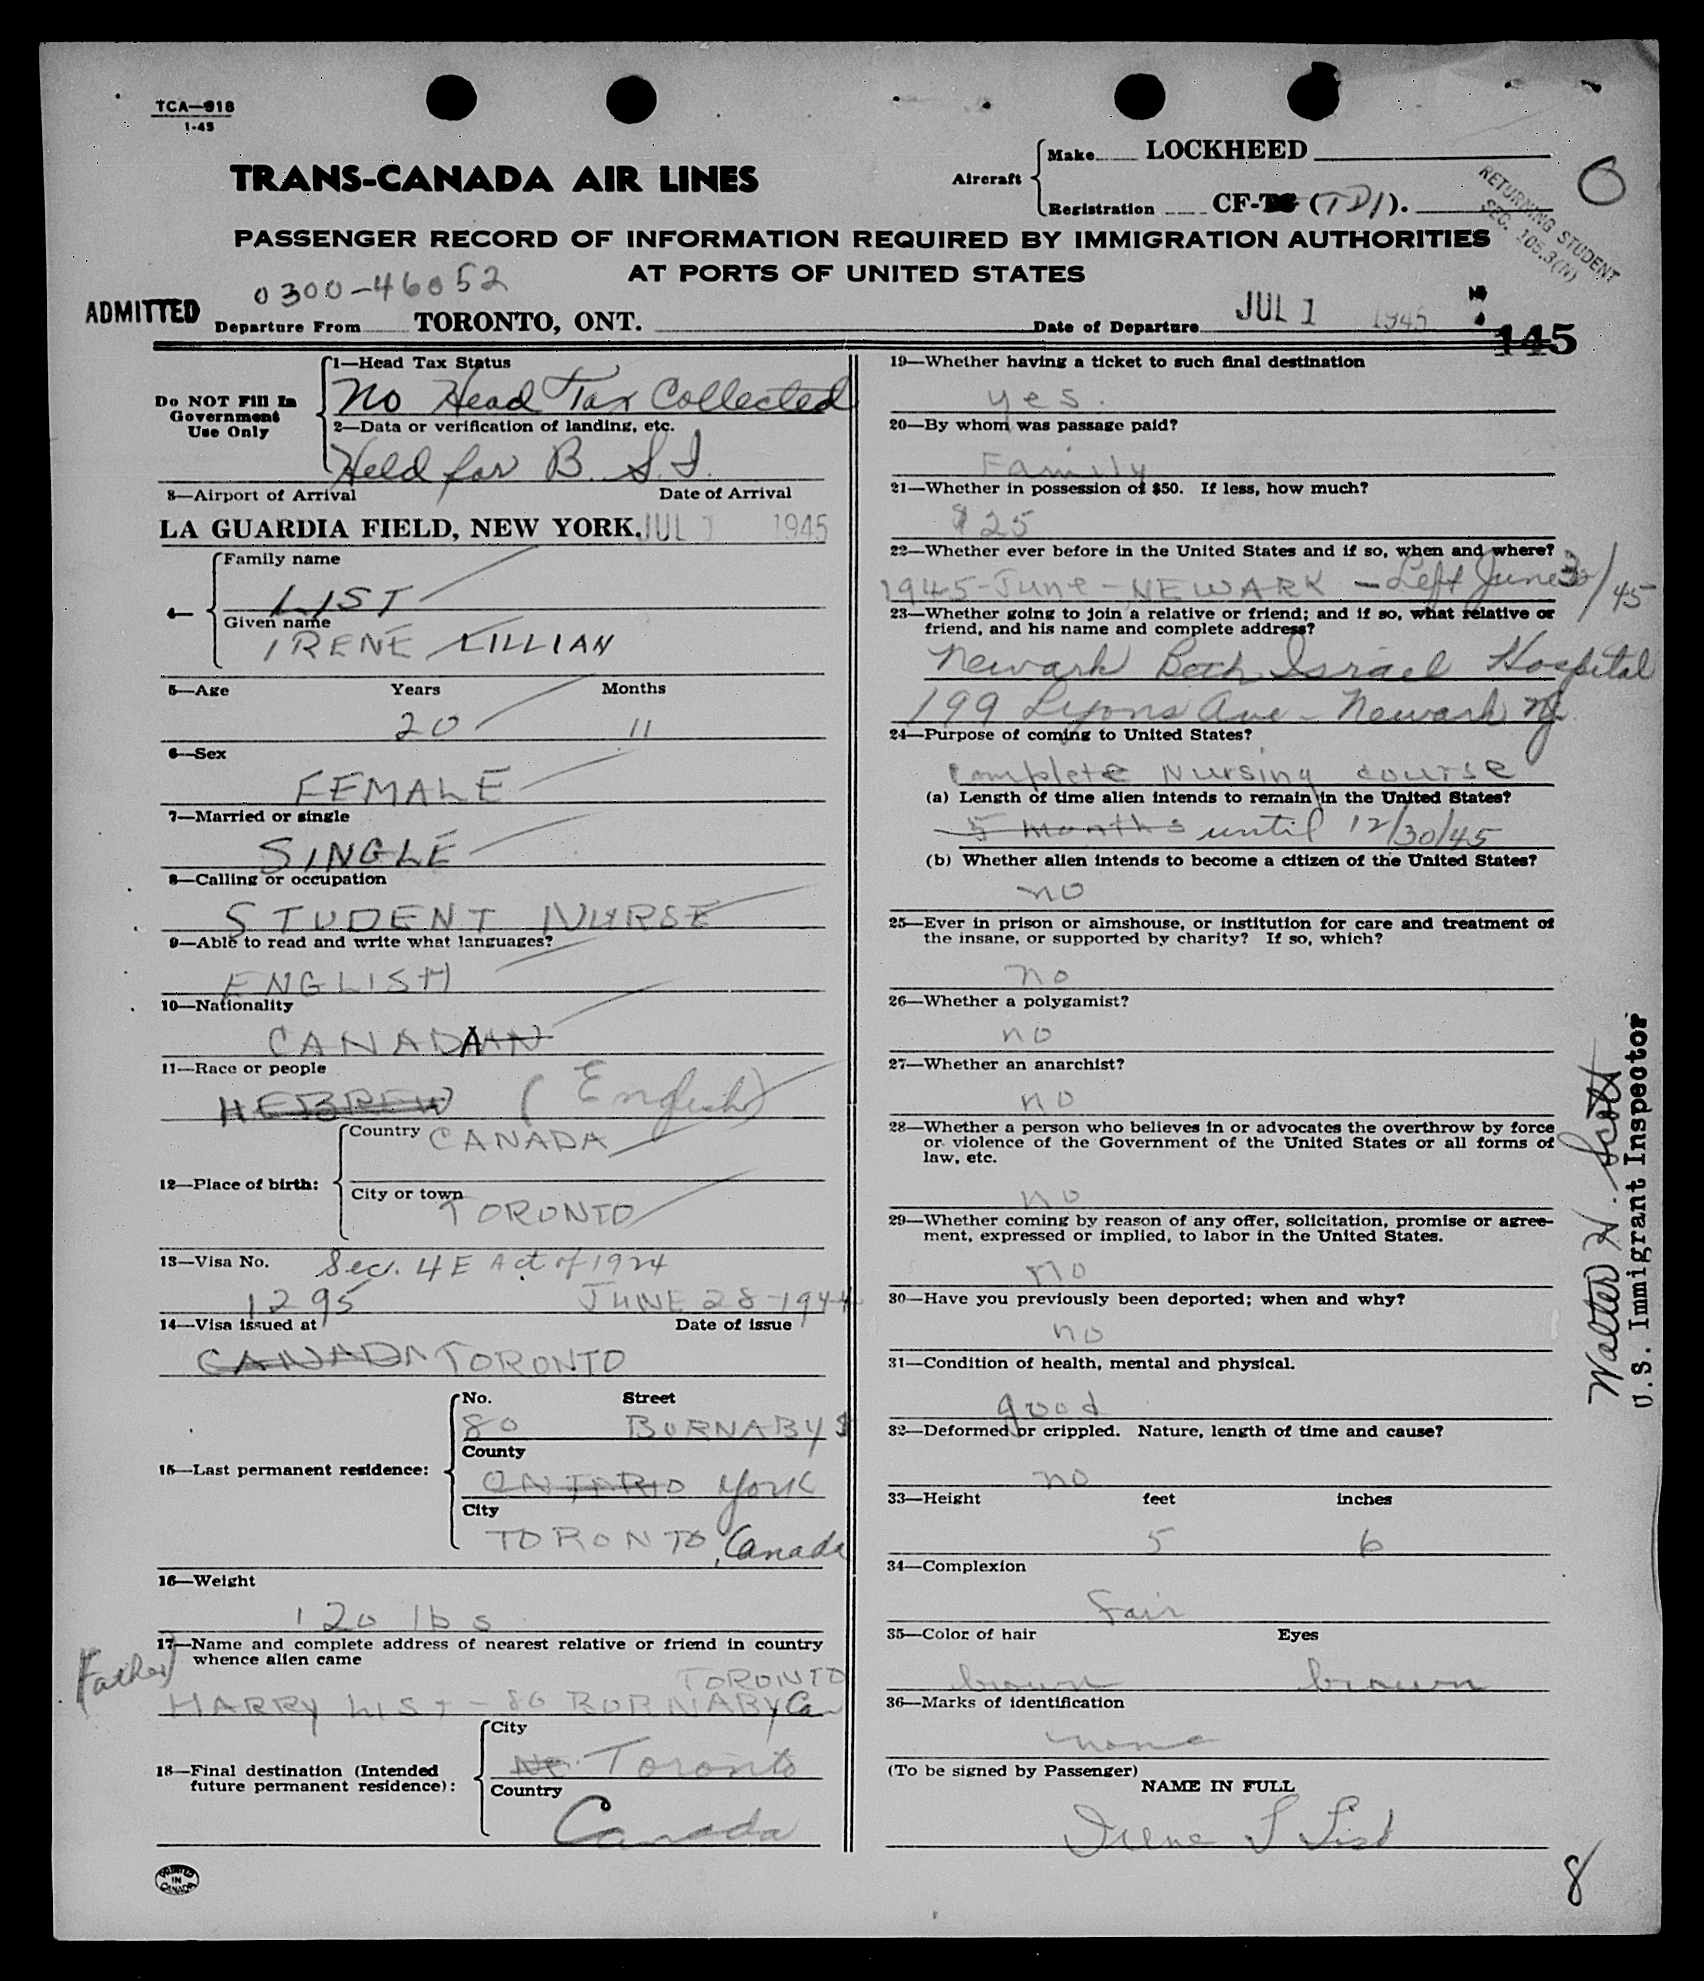 TCA—918
1-45
TRANS-CANADA AIR LINES
Aircraft
Make LOCKHEED
Registration CF- (TDI).
RETURNING STUDENT
SEC. 105.3(N)
O
PASSENGER RECORD OF INFORMATION REQUIRED BY IMMIGRATION AUTHORITIES
AT PORTS OF UNITED STATES
0300-46052
ADMITTED
Departure From TORONTO, ONT.
Date of Departure JUL 1 1945
145
Do NOT Fill In
Government
Use Only
1—Head Tax Status
No Head Tax Collected
2—Data or verification of landing, etc.
Held for B. S. I.
3—Airport of Arrival Date of Arrival
LA GUARDIA FIELD, NEW YORK. JUL 1 1945
4—
Family name
LIST
Given name
IRENE LILLIAN
5—Age Years Months
20 11
6—Sex
FEMALE
7—Married or single
SINGLE
8—Calling or occupation
STUDENT NURSE
9—Able to read and write what languages?
ENGLISH
10—Nationality
CANADA
11—Race or people
HEBREW (English)
12—Place of birth:
Country CANADA
City or town
TORONTO
13—Visa No. Sec. 4E Act of 1924
1295 JUNE 28-1944
14—Visa issued at Date of issue
CANADA TORONTO
15—Last permanent residence:
No. Street
80 BURNABY
County
ONTARIO York
City
TORONTO, Canada
16—Weight
120 lbs
17—Name and complete address of nearest relative or friend in country
whence alien came
[Father]
TORONTO
HARRY LIST - 80 BURNABY Can
18—Final destination (Intended
future permanent residence):
City
Toronto
Country
Canada
PRINTED
IN
CANADA
19—Whether having a ticket to such final destination
yes.
20—By whom was passage paid?
Family
21—Whether in possession of $50. If less, how much?
$25
22—Whether ever before in the United States and if so, when and where?
1945-June-NEWARK - Left June 30/45
23—Whether going to join a relative or friend; and if so, what relative or
friend, and his name and complete address?
Newark Beth Israel Hospital
199 Lyons Ave - Newark NJ
24—Purpose of coming to United States?
Complete Nursing course
(a) Length of time alien intends to remain in the United States?
5 months until 12/30/45
(b) Whether alien intends to become a citizen of the United States?
no
25—Ever in prison or almshouse, or institution for care and treatment of
the insane, or supported by charity? If so, which?
no
26—Whether a polygamist?
no
27—Whether an anarchist?
no
28—Whether a person who believes in or advocates the overthrow by force
or violence of the Government of the United States or all forms of
law, etc.
no
29—Whether coming by reason of any offer, solicitation, promise or agree-
ment, expressed or implied, to labor in the United States.
no
30—Have you previously been deported; when and why?
no
31—Condition of health, mental and physical.
good
32—Deformed or crippled. Nature, length of time and cause?
no
33—Height feet inches
5 6
34—Complexion
fair
35—Color of hair Eyes
brown brown
36—Marks of identification
none
(To be signed by Passenger)
NAME IN FULL
Irene L List
Walter H. Scott
U.S. Immigrant Inspector
8